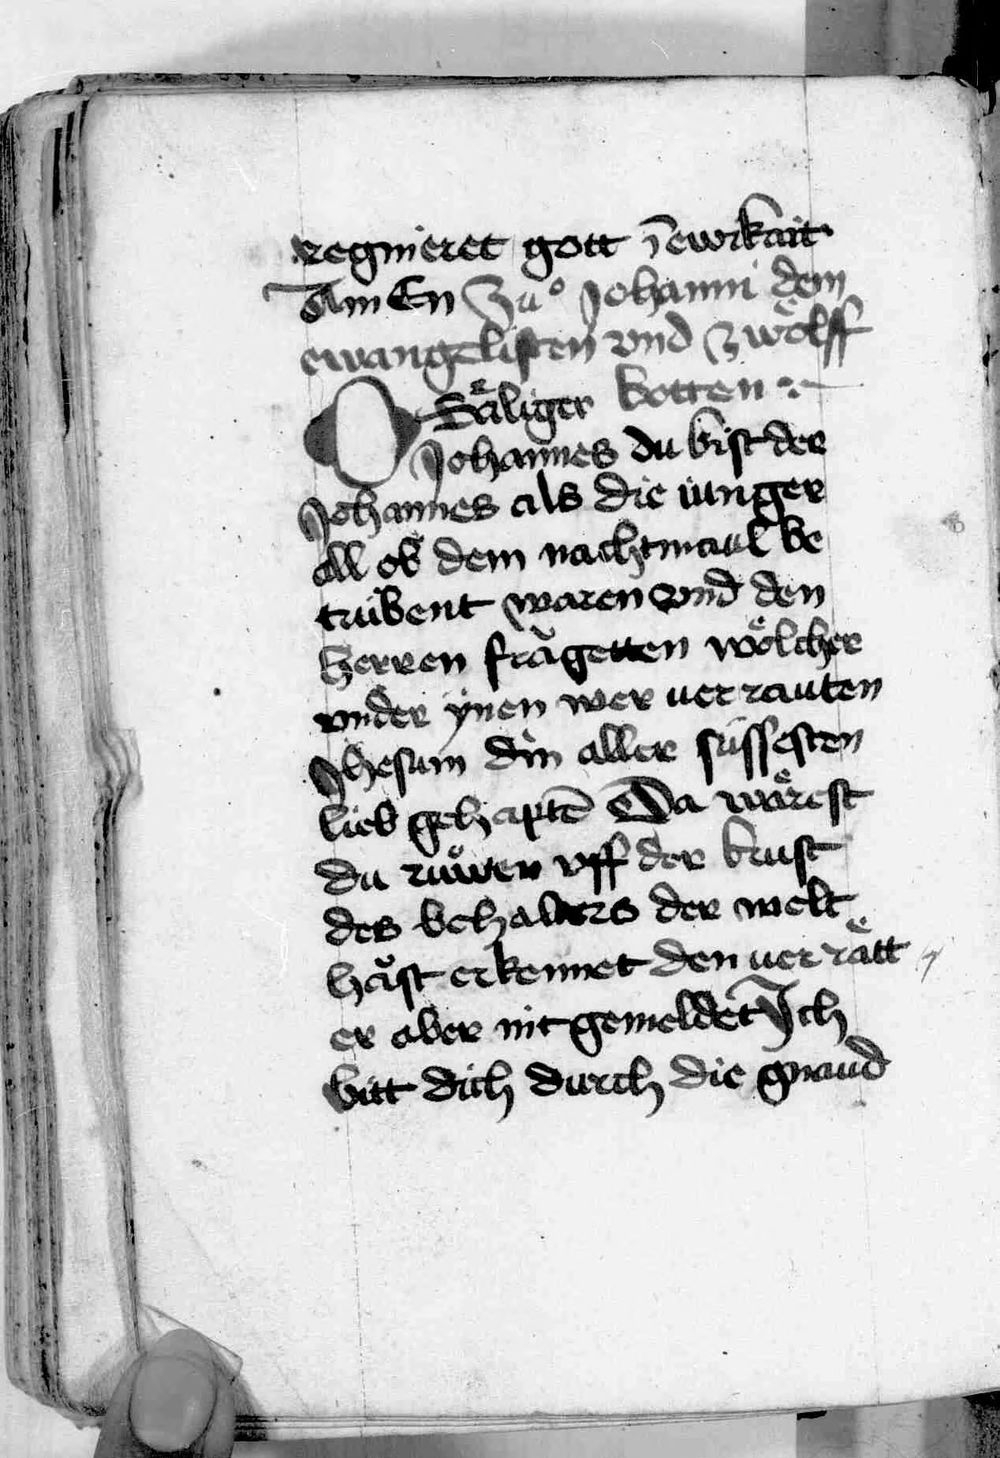 regnieret gott jn ewikait
AmEn Zuͦ Johanni dem
ewangelisten vnd zwoͤlff
O Saͤliger botten
Johannes du bist der
Johannes als die iunger
all ob dem nachtmaul be
trübent waren vnd den
herren fragetten woͤlcher
vnder ynen wer uerrauten
Jhesum din aller süssesten
lieb gehapte Da waͤrest
du ruͦwen vff der brust
des behalters der welt
haͧst erkennet den uerraͤtt
er aber nit gemeldet Jch
bitt dich durch die gnaud